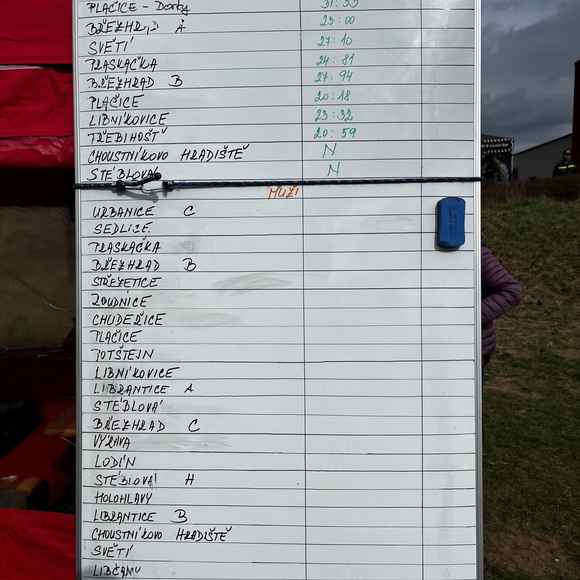 PLAČICE - Dorty 31:55
BŘEZHRAD A 23:00
SVĚTÍ 27:10
PRASKAČKA 24:81
BŘEZHRAD B 27:94
PLAČICE 20:18
LIBNÍKOVICE 23:32
TŘEBIHOŠŤ 20:59
CHOUSTNÍKOVO HRADIŠTĚ N
STÉBLOVÁ N
MUŽI
URBANICE C
SEDLICE
PRASKAČKA
BŘEZHRAD B
STŘEZETICE
ROUDNICE
CHUDEŘICE
PLAČICE
POTŠTEJN
LIBNÍKOVICE
LIBRANTICE A
STÉBLOVÁ
BŘEZHRAD C
VÝRAVA
LODÍN
STÉBLOVÁ H
HOLOHLAVY
LIBRANTICE B
CHOUSTNÍKOVO HRADIŠTĚ
SVĚTÍ
LIBČANY